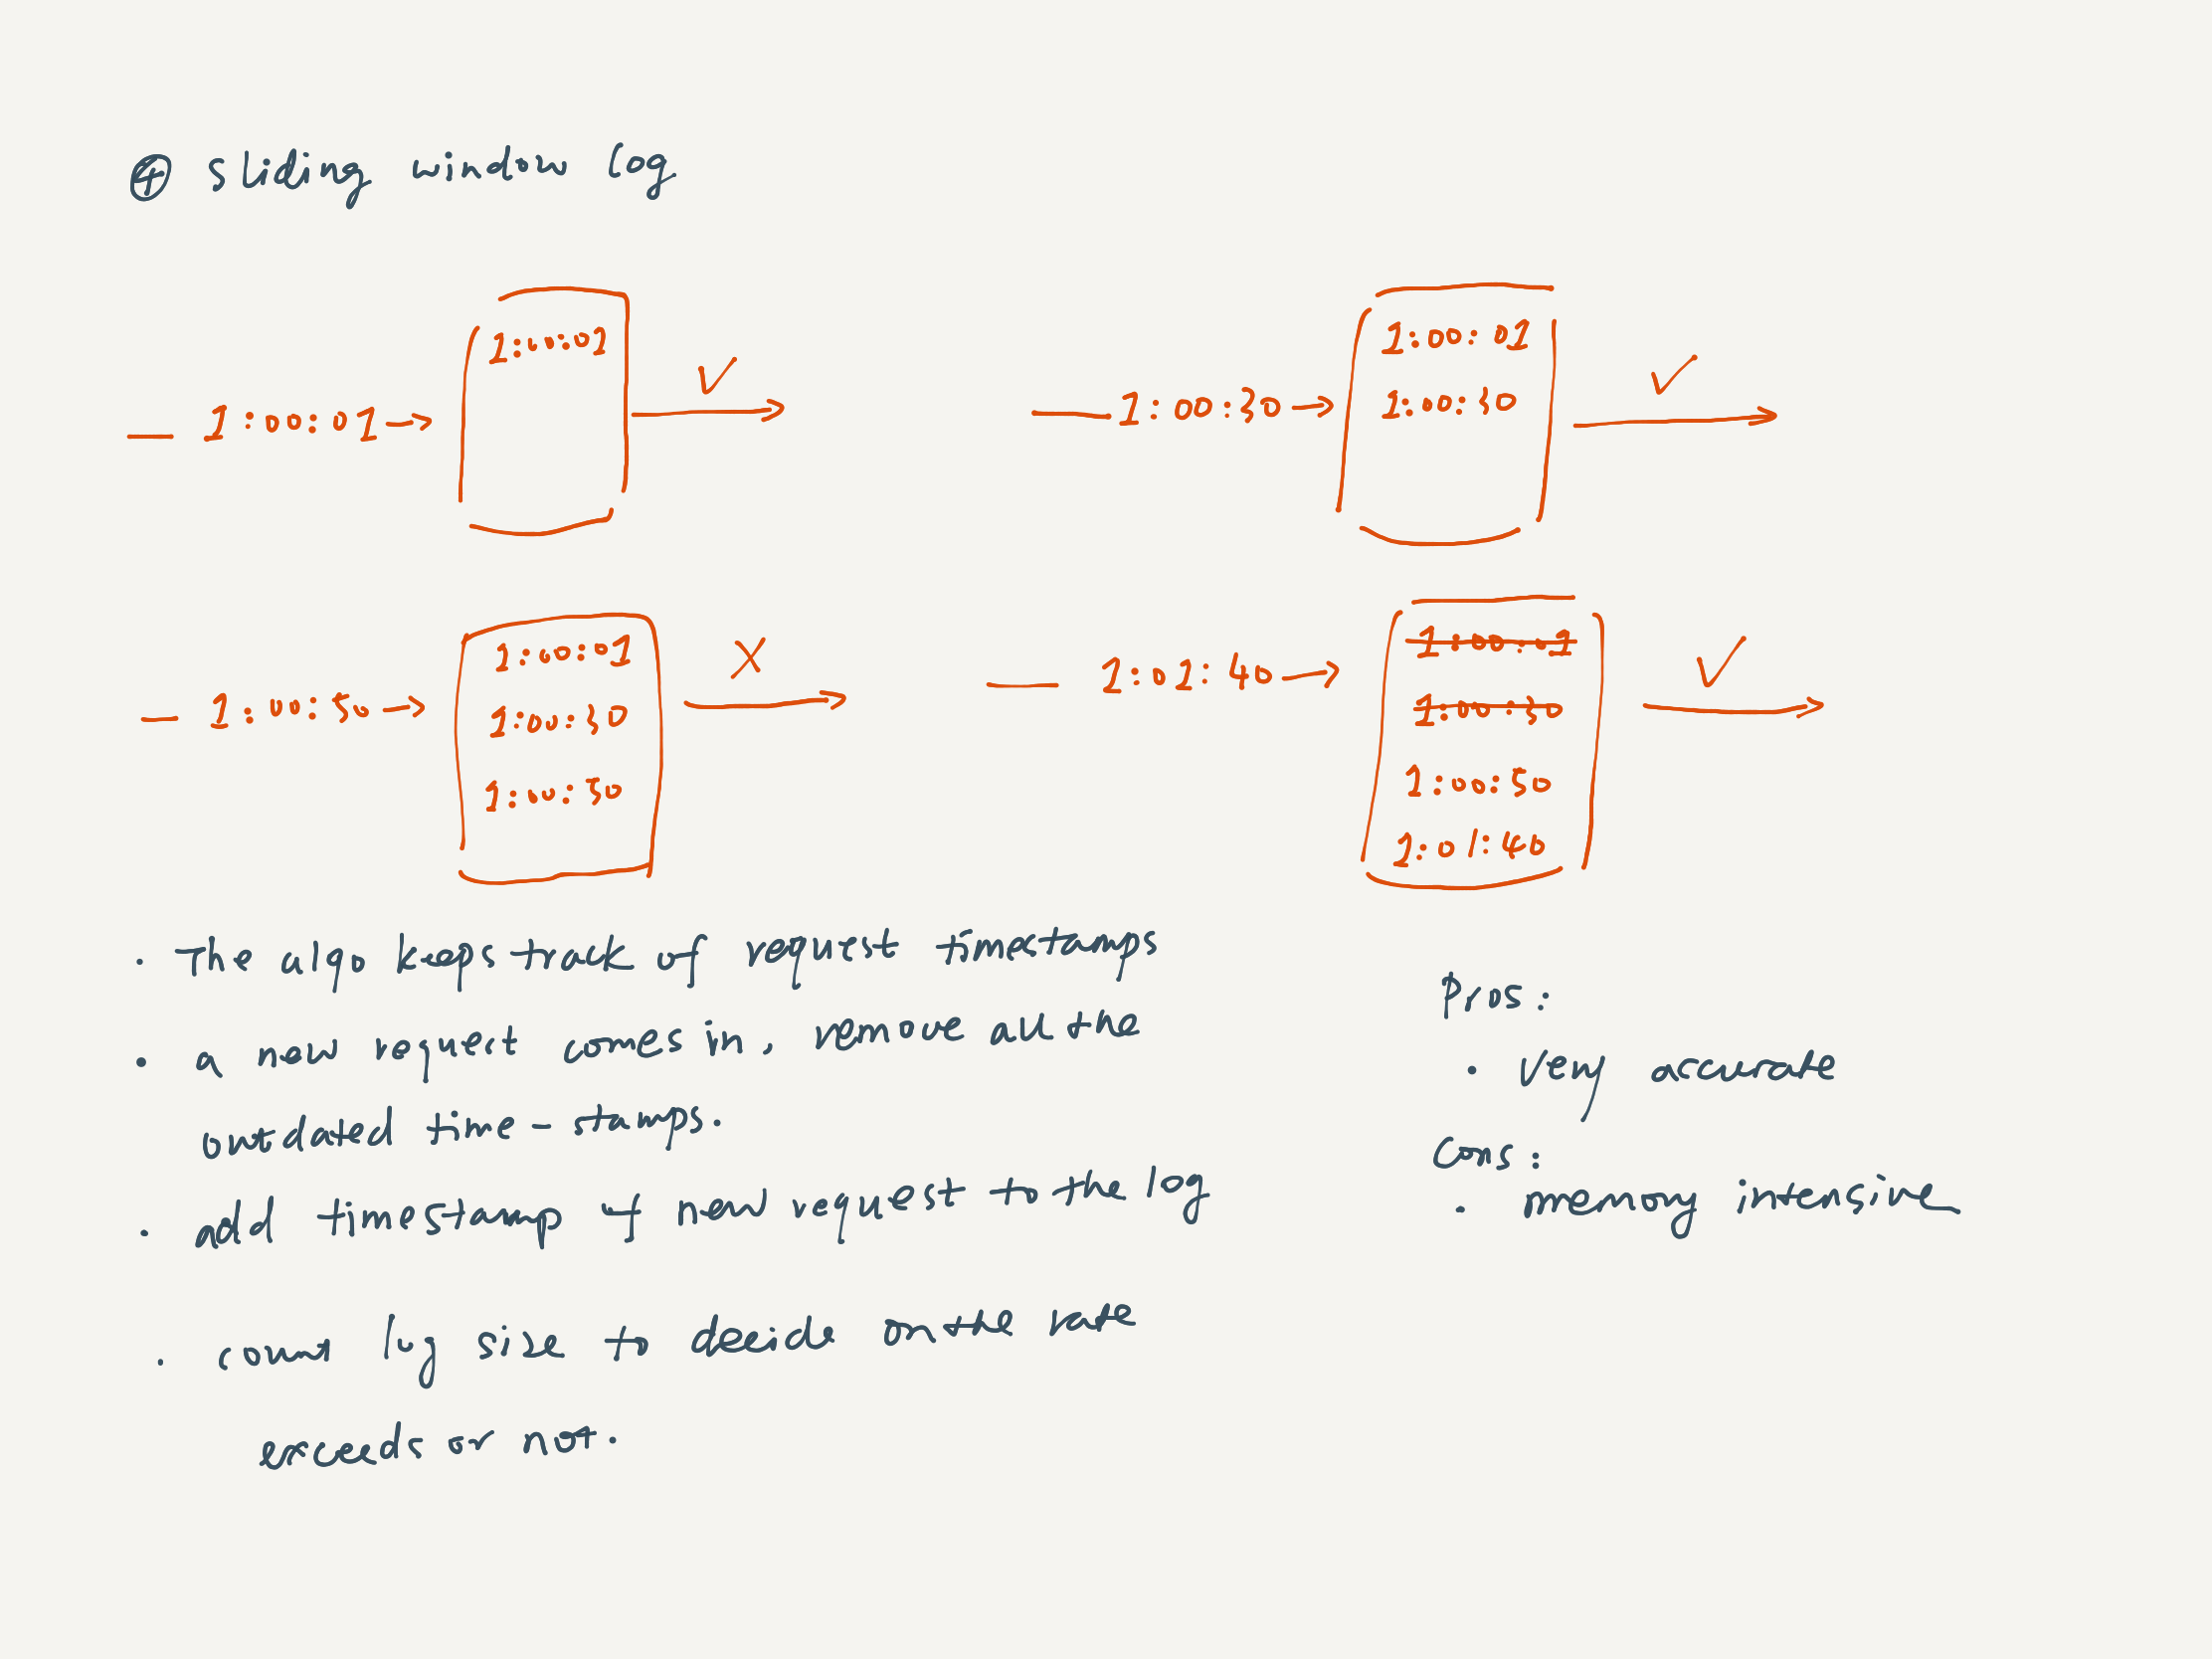 ④ sliding window log
1:00:01
1:00:01
1:00:30
1:00:01
1:00:30
1:00:50
1:00:01
1:00:30
1:00:50
1:01:40
1:00:01
1:00:30
1:00:50
1:01:40
. The algo keeps track of request timestamps
• a new request comes in, remove all the
outdated time-stamps.
. add timestamp of new request to the log
. count log size to decide on the rate
exceeds or not.
Pros:
• Very accurate
Cons:
• memory intensive